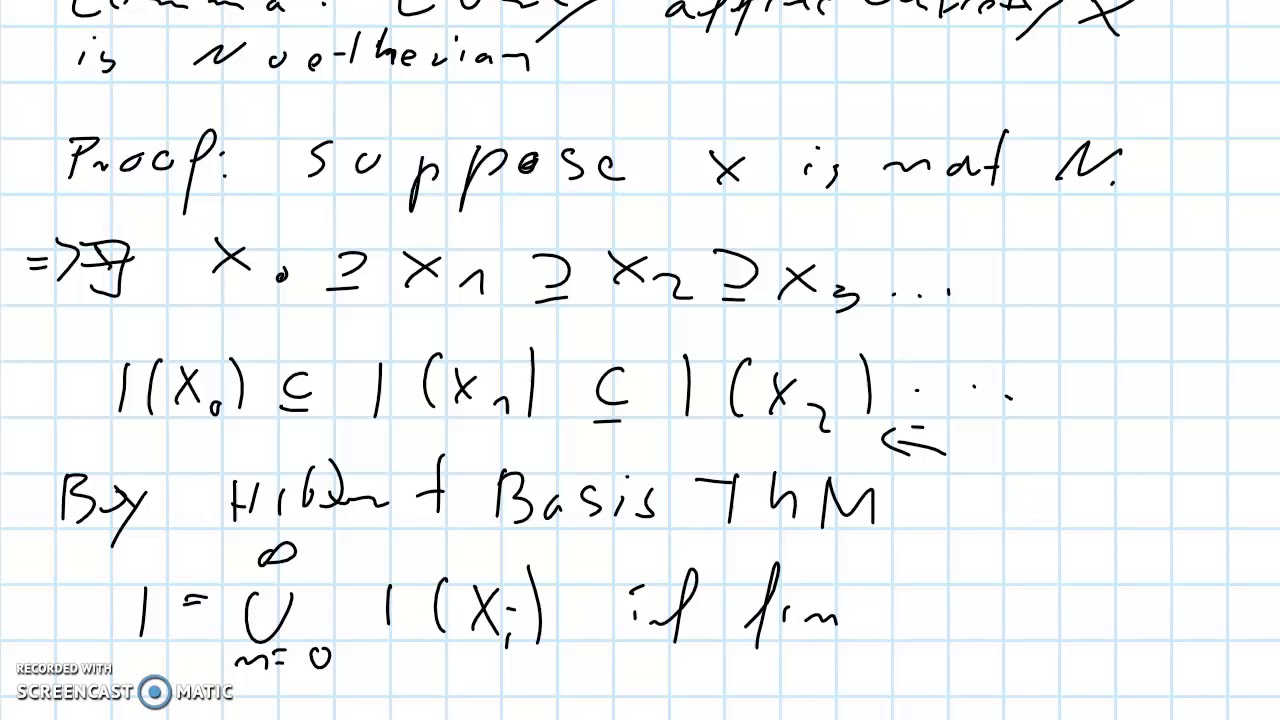 Lemma: Every affine variety X
is Noetherian
Proof: Suppose X is not N.
=> ∃ X₀ ⊇ X₁ ⊇ X₂ ⊇ X₃ ...
I(X₀) ⊆ I(X₁) ⊆ I(X₂) ...
⇐
By Hilbert Basis ThM
∞
I = ∪ I(Xᵢ) if fin
n=0
RECORDED WITH
SCREENCAST MATIC